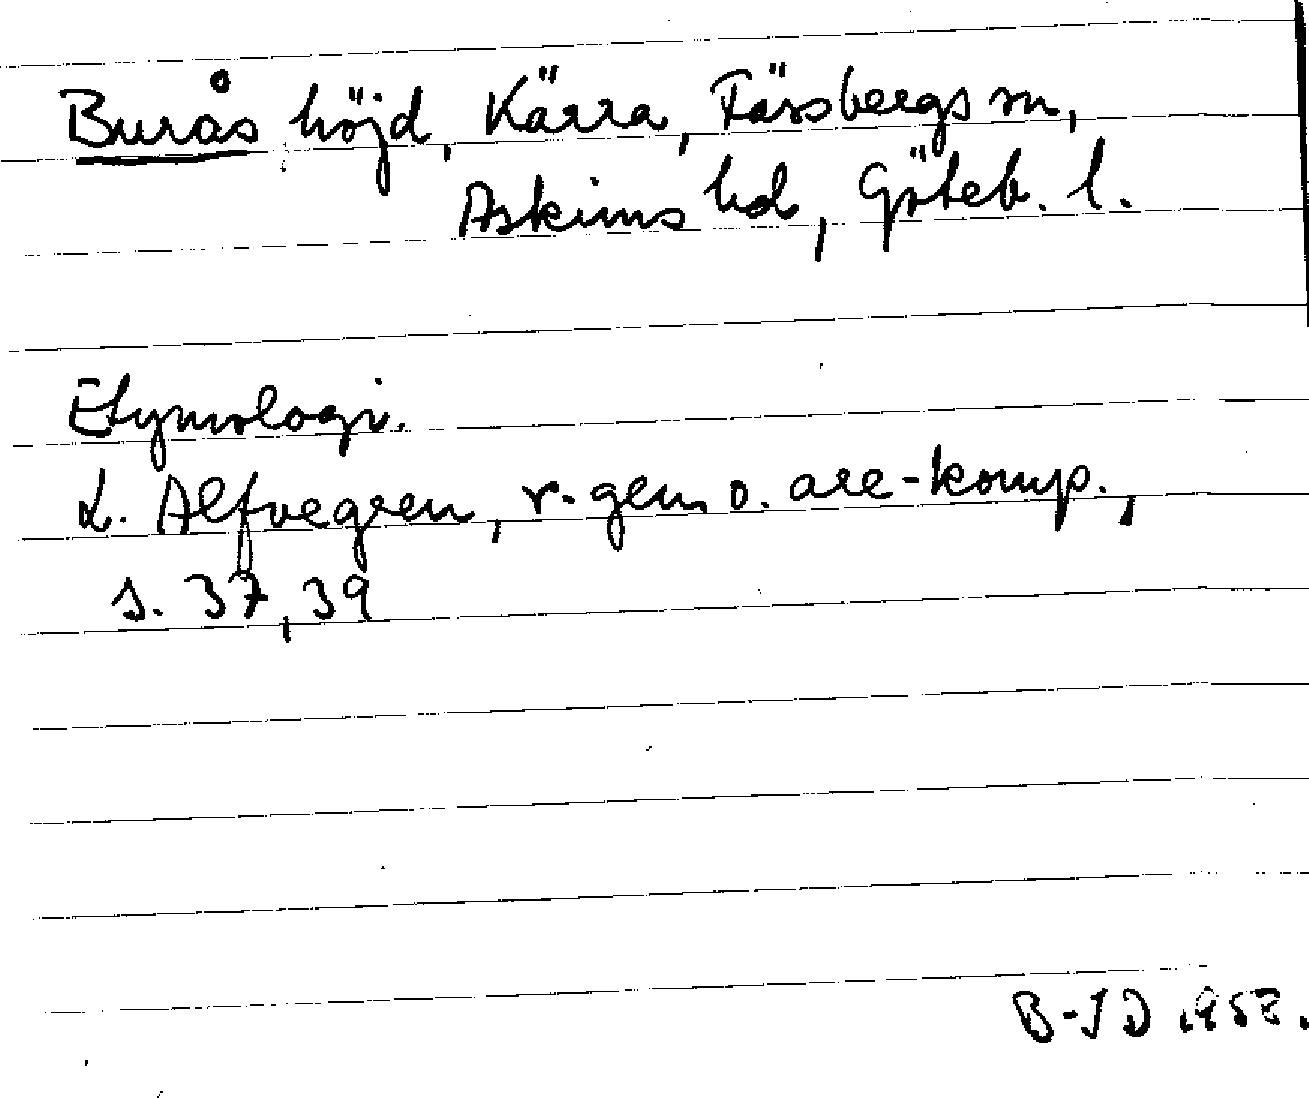 Burås höjd, Kärra, Fässbergs sn,
Askims hd, Göteb. l.
Etymologi.
L. Alfvegren, r-gen. o. are-komp.,
s. 37, 39
B-J D